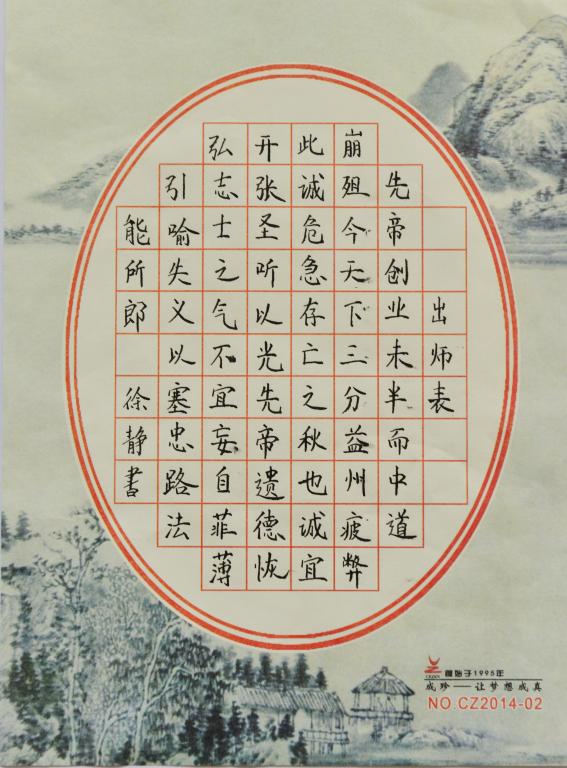 出师表
先帝创业未半而中道
崩殂今天下三分益州疲弊
此诚危急存亡之秋也诚宜
开张圣听以光先帝遗德恢
弘志士之气不宜妄自菲薄
引喻失义以塞忠路法
能所郎 徐静书
始于1995年
成珍——让梦想成真
NO.CZ2014-02